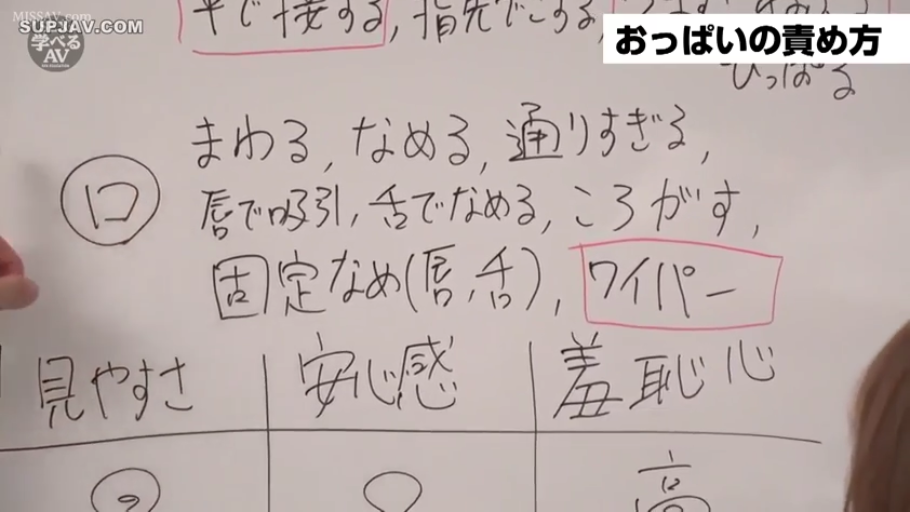 MISSAV.com
SUPJAV.COM
学べる
AV
おっぱいの責め方
で接する, 指先でこする,
ひっぱる
口
まわる, なめる, 通りすぎる,
唇で吸引, 舌でなめる, ころがす,
固定なめ(唇, 舌), ワイパー
見やすさ 安心感 羞恥心